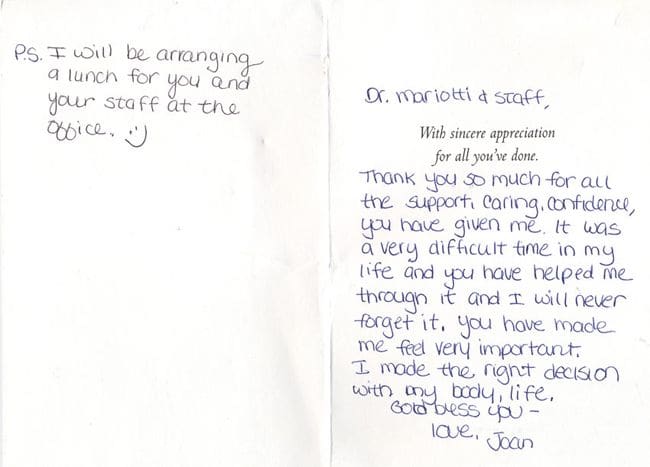 P.S. I will be arranging
a lunch for you and
your staff at the
office. :)
Dr. Mariotti & Staff,
With sincere appreciation
for all you've done.
Thank you so much for all
the support, caring, confidence,
you have given me. It was
a very difficult time in my
life and you have helped me
through it and I will never
forget it. You have made
me feel very important.
I made the right decision
with my body, life.
God bless you -
love, Joan